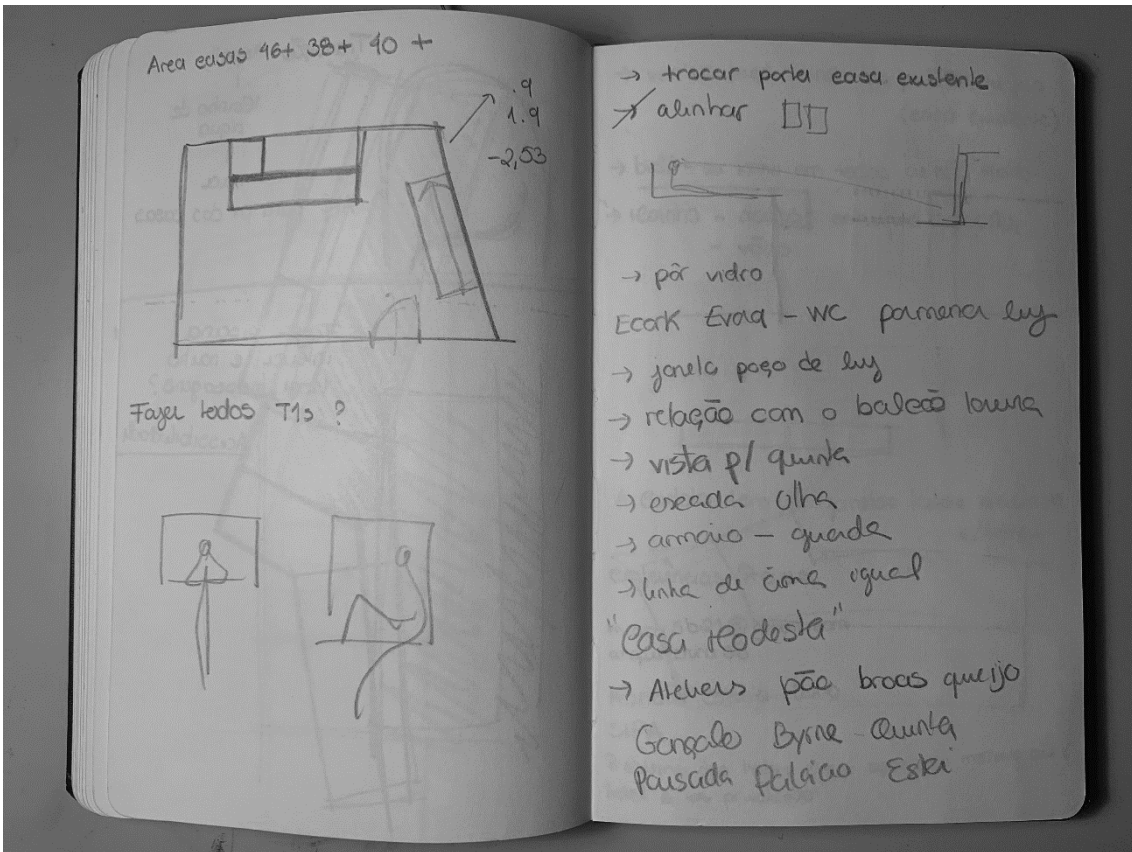 Area casas 46+ 38+ 40 +
.9
1.9
-2,53
Fazer todos T1s ?
→ trocar porta casa existente
→ alinhar
→ pôr vidro
Ecork Evora - WC luz
→ janela poço de luz
→ relação com o balcão
→ vista p/ quinta
→ escada
→ armário - guarda
→ linha de cima igual
"Casa Modesta"
→ Ateliers pão broas queijo
Gonçalo Byrne - Quinta
Pousada Palácio Estói